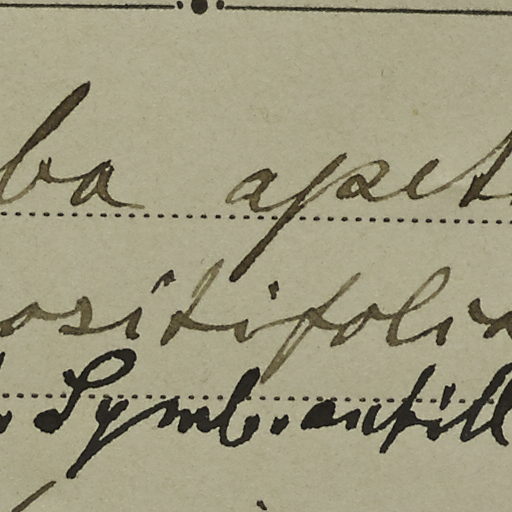 ba apet
ositifolia
Symb. antill